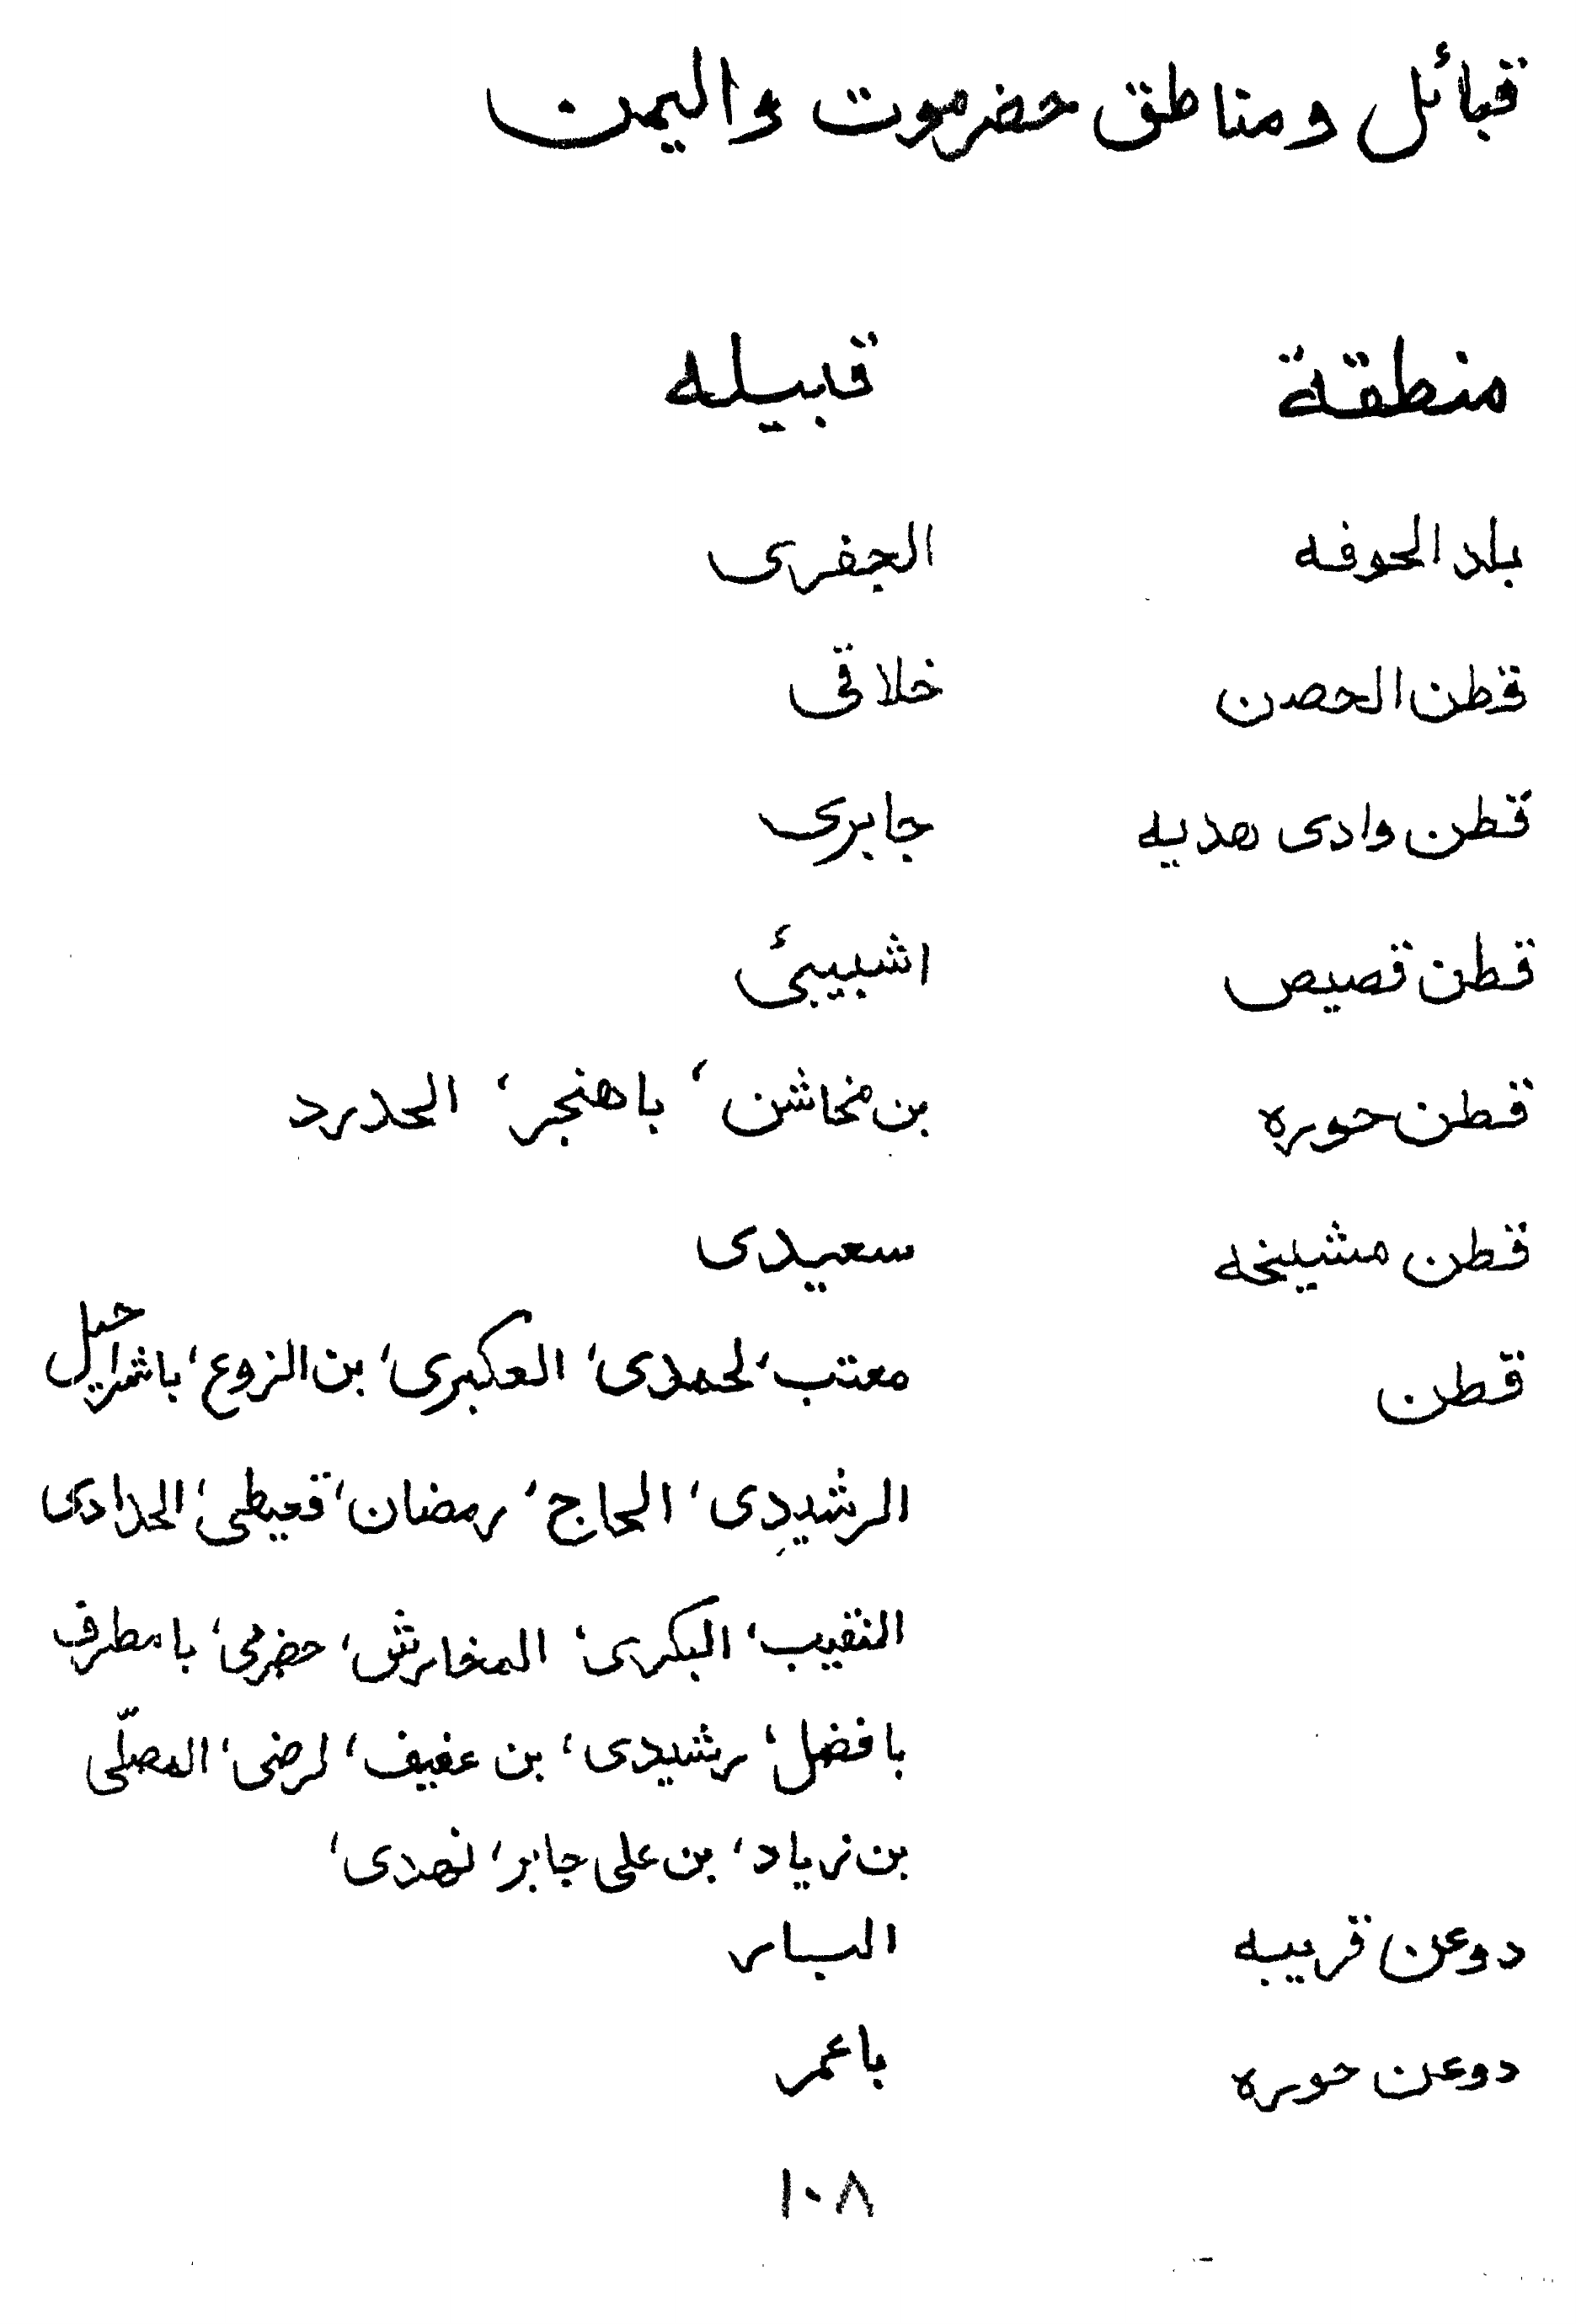 قبائل ومناطق حضرموت واليمن
منطقة قبيله
بلد الحوفه الجفرى
قطن الحصن خلاقى
قطن وادى هديه جابرى
قطن قصيص اشبيبئ
قطن حوره بن مخاشن، باهنجر، الحدرد
قطن مشيخه سعيدى
قطن معتب، لحمدى، العكبرى، بن الزوع، باشراحيل
الرشيدى، الحاج، رمضان، قعيطى، الحدادى
النقيب، البكرى، المخارش، حضرمى، بامطرف
بافضل، رشيدى، بن عفيف، لرضى، المصلّى
بن زياد، بن على جابر، نهدى،
دوعن قريبه البار
دوعن حوره باعمر
١٠٨